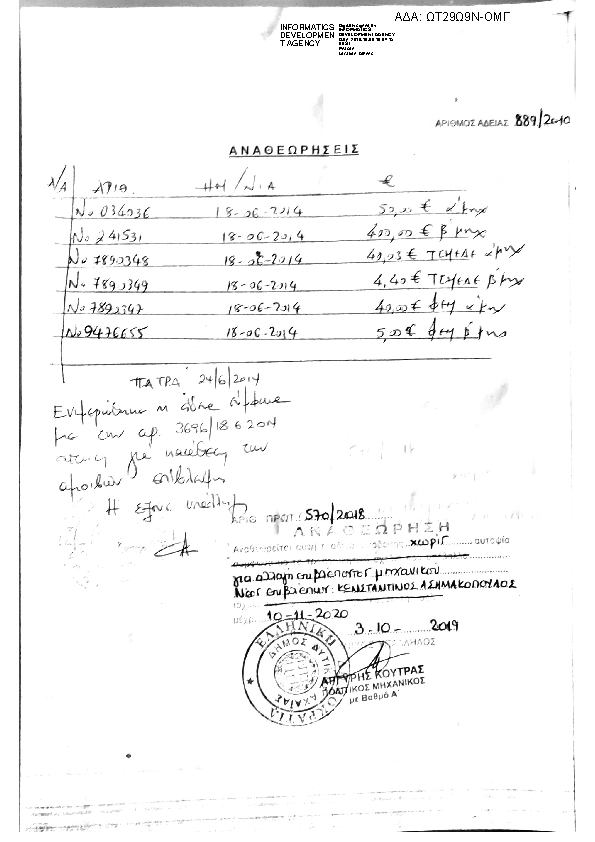 ΑΔΑ: ΩΤ29Ω9Ν-ΟΜΓ
INFORMATICS
DEVELOPMEN
T AGENCY
ΑΡΙΘΜΟΣ ΑΔΕΙΑΣ 889/2010
ΑΝΑΘΕΩΡΗΣΕΙΣ
Α/Α ΑΡΙΘ. ΗΜ/ΝΙΑ €
No 036036 18-06-2014 50,00 € α' μηχ
No 241531 18-06-2014 400,00 € β' μηχ
No 7890348 18-06-2014 40,03 € ΤΣΜΕΔΕ α' μηχ
No 7890349 18-06-2014 4,40 € ΤΣΜΕΔΕ β' μηχ
No 7890347 18-06-2014 40,00 € ΦΕΜ α' μηχ
No 9476655 18-06-2014 5,00 € ΦΕΜ β' μηχ
ΠΑΤΡΑ 24/6/2014
Ενημερώθηκε η άδεια σύμφωνα
με την αρ. 3696/18 6 2014
αίτηση για κατάθεση των
αμοιβών επίβλεψης
Η εξουσ. υπάλλ.
ΑΡΙΘ. ΠΡΩΤ.: 570/2018
ΑΝΑΘΕΩΡΗΣΗ
Αναθεωρείται αυτή η χωρίς αυτοψία
για αλλαγή επιβλέποντος μηχανικού
Νέος επιβλέπων: ΚΩΝΣΤΑΝΤΙΝΟΣ ΑΣΗΜΑΚΟΠΟΥΛΟΣ
μέχρι 10-11-2020
3-10-2019
ΕΛΛΗΝΙΚΗ ΔΗΜΟΚΡΑΤΙΑ
ΔΗΜΟΣ ΔΥΤΙΚΗΣ ΑΧΑΪΑΣ
ΑΡΓΥΡΗΣ ΚΟΥΤΡΑΣ
ΠΟΛΙΤΙΚΟΣ ΜΗΧΑΝΙΚΟΣ
με Βαθμό Α΄